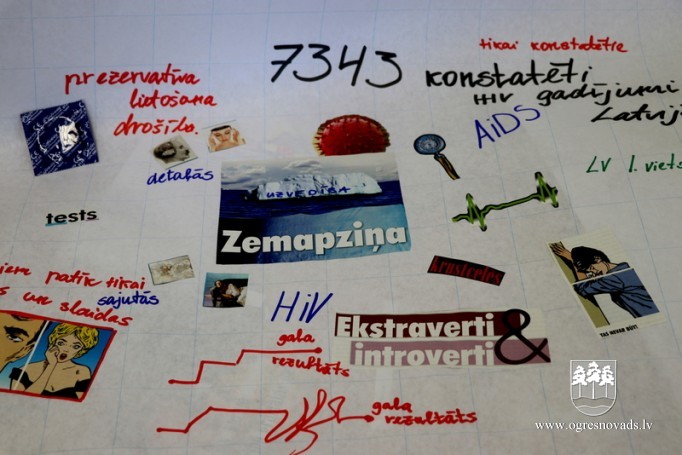 7343
tikai konstatētie
prezervatīva
lietošana
drošība.
konstatēti
HIV gadījumi
Latvijā
AiDS
detaļās
LV 1. viets
UZVEDĪBA
tests
Zemapziņa
patīk tikai
sajūtās
HiV
Ekstraverti &
introverti
TAS NEVAR BŪT!
gala
rezultāts
gala
rezultāts
www.ogresnovads.lv